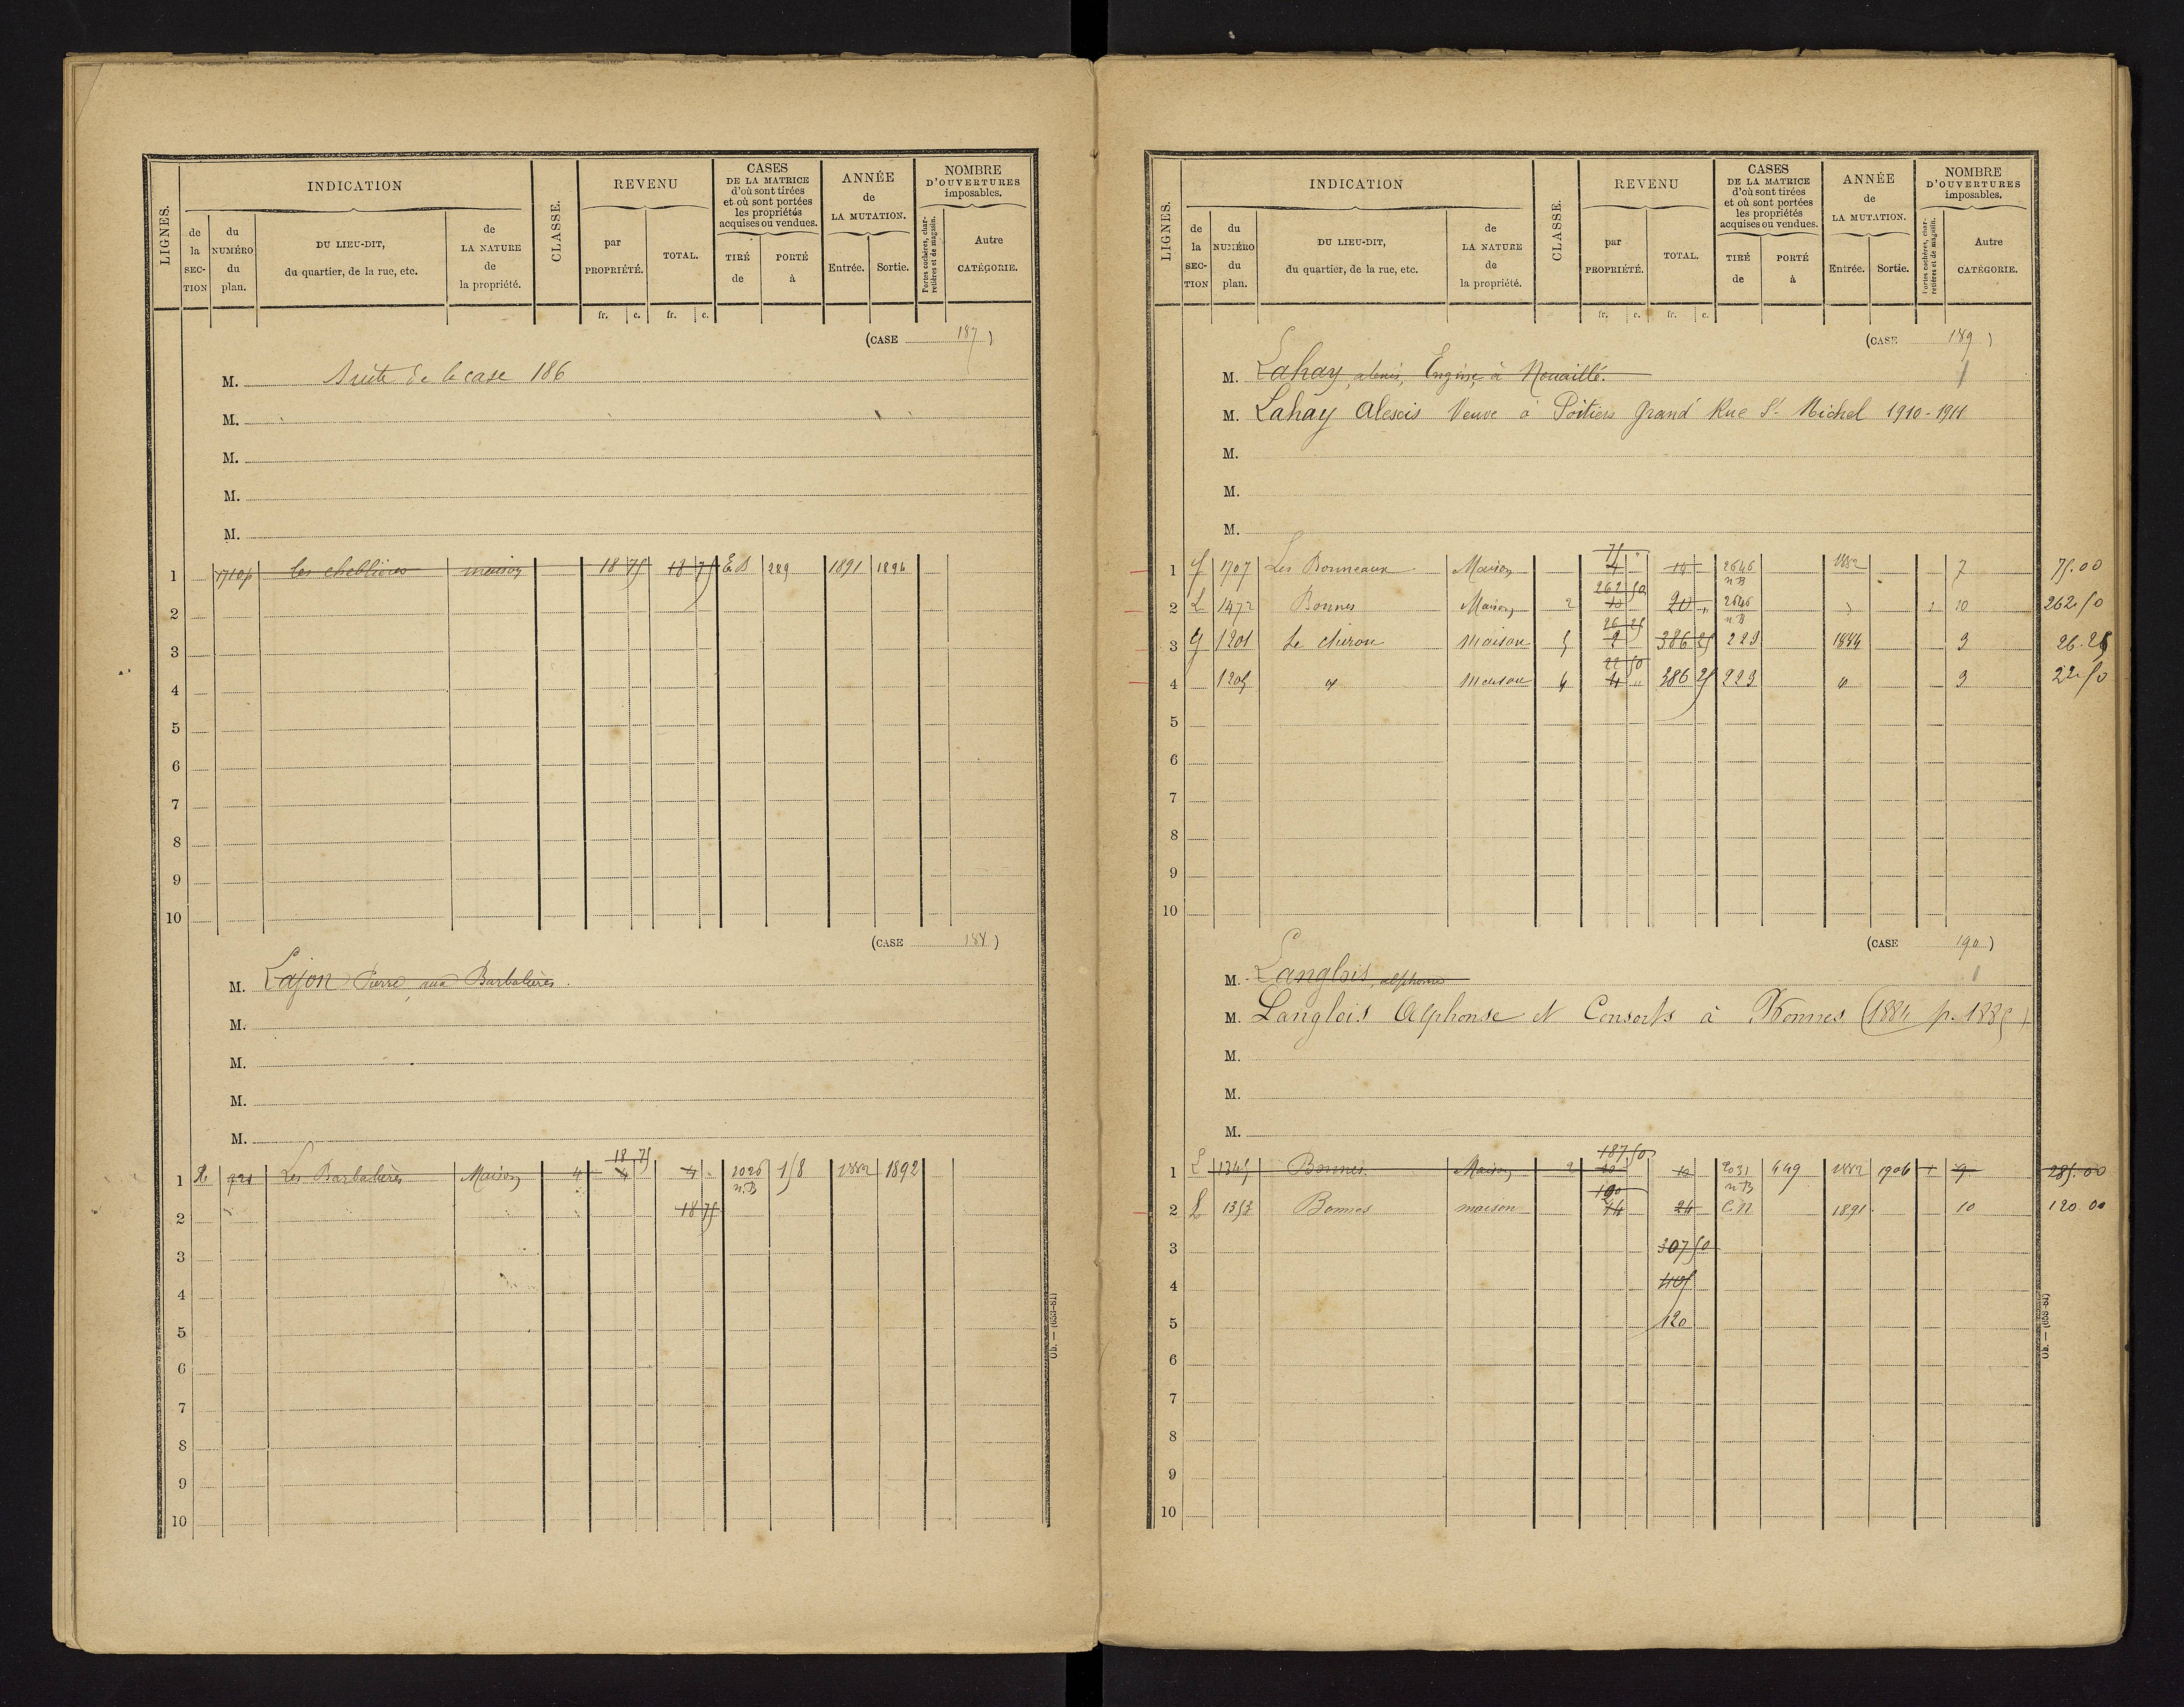 LIGNES.
INDICATION
de la SECTION
du NUMÉRO du plan.
DU LIEU-DIT, du quartier, de la rue, etc.
de LA NATURE de la propriété.
CLASSE.
REVENU
par PROPRIÉTÉ.
TOTAL.
CASES DE LA MATRICE d'où sont tirées et où sont portées les propriétés acquises ou vendues.
TIRÉ de
PORTÉ à
ANNÉE de LA MUTATION.
Entrée.
Sortie.
NOMBRE D'OUVERTURES imposables.
Portes cochères, charretières et de magasin.
Autre CATÉGORIE.
fr. c. fr. c.
(CASE 187)
M. Suite de la case 186
M.
M.
M.
M.
1 1710p les cheblières maison 18 75 18 75 E.B 289 1891 1894
2
3
4
5
6
7
8
9
10
(CASE 188)
M. Lajon Pierre, aux Barbalières.
M.
M.
M.
M.
18 75
1 Les Barbalières Maison 4 4 4 2026 n.B 158 1882 1892
2 18 75
3
4
5
6
7
8
9
10
Ob. — (653-81)
LIGNES.
INDICATION
de la SECTION
du NUMÉRO du plan.
DU LIEU-DIT, du quartier, de la rue, etc.
de LA NATURE de la propriété.
CLASSE.
REVENU
par PROPRIÉTÉ.
TOTAL.
CASES DE LA MATRICE d'où sont tirées et où sont portées les propriétés acquises ou vendues.
TIRÉ de
PORTÉ à
ANNÉE de LA MUTATION.
Entrée.
Sortie.
NOMBRE D'OUVERTURES imposables.
Portes cochères, charretières et de magasin.
Autre CATÉGORIE.
fr. c. fr. c.
(CASE 189)
M. Lahay, alexis, à Nouaillé.
M. Lahay Alexis Veuve à Poitiers Grand' Rue St Michel 1910-1911
M.
M.
M.
75 "
1 1707 Les Bonneaux Maison 4 2646 n B 1882 7 75.00
262 50
2 L 1472 Bonnes Maison 2 10 20 " 2646 n B " 1 10 262.50
26 25
3 G 1201 Le chiron maison 5 2 386 25 223 1884 3 26.25
22 50
4 1205 d° maison 4 4 " 386 25 223 d° 3 22.50
5
6
7
8
9
10
(CASE 190)
M. Langlois, alphonse
M. Langlois Alphonse et Consorts à Bonnes (1884 p. 1885)
M.
M.
M.
187,50
1 L 1345 Bonnes Maison 2 10 10 2031 n B 449 1882 1906 1 9 285.00
120
2 L 1353 Bonnes maison 24 24 C.N 1891 10 120.00
3 307 50
4 405
5 120
6
7
8
9
10
Ob. — (653-81)